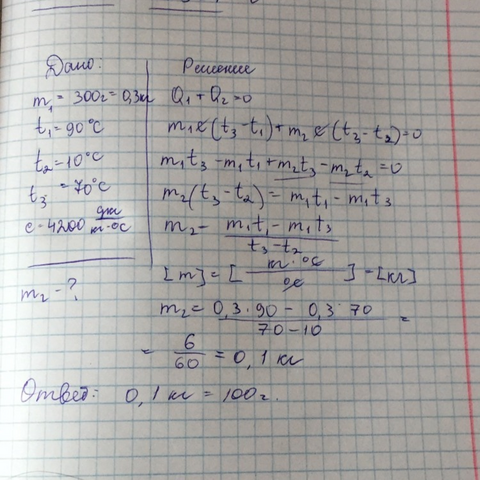 Дано:
m₁ = 300г = 0,3кг
t₁ = 90°C
t₂ = 10°C
t₃ = 70°C
c - 4200 дж/кг·°C
m₂ - ?
Решение
Q₁ + Q₂ = 0
m₁c(t₃ - t₁) + m₂c(t₃ - t₂) = 0
m₁t₃ - m₁t₁ + m₂t₃ - m₂t₂ = 0
m₂(t₃ - t₂) = m₁t₁ - m₁t₃
m₂ - m₁t₁ - m₁t₃ / t₃ - t₂
[m] = [кг·°C / °C] - [кг]
m₂ = 0,3·90 - 0,3·70 / 70 - 10 =
= 6/60 = 0,1 кг
Ответ: 0,1 кг = 100г.